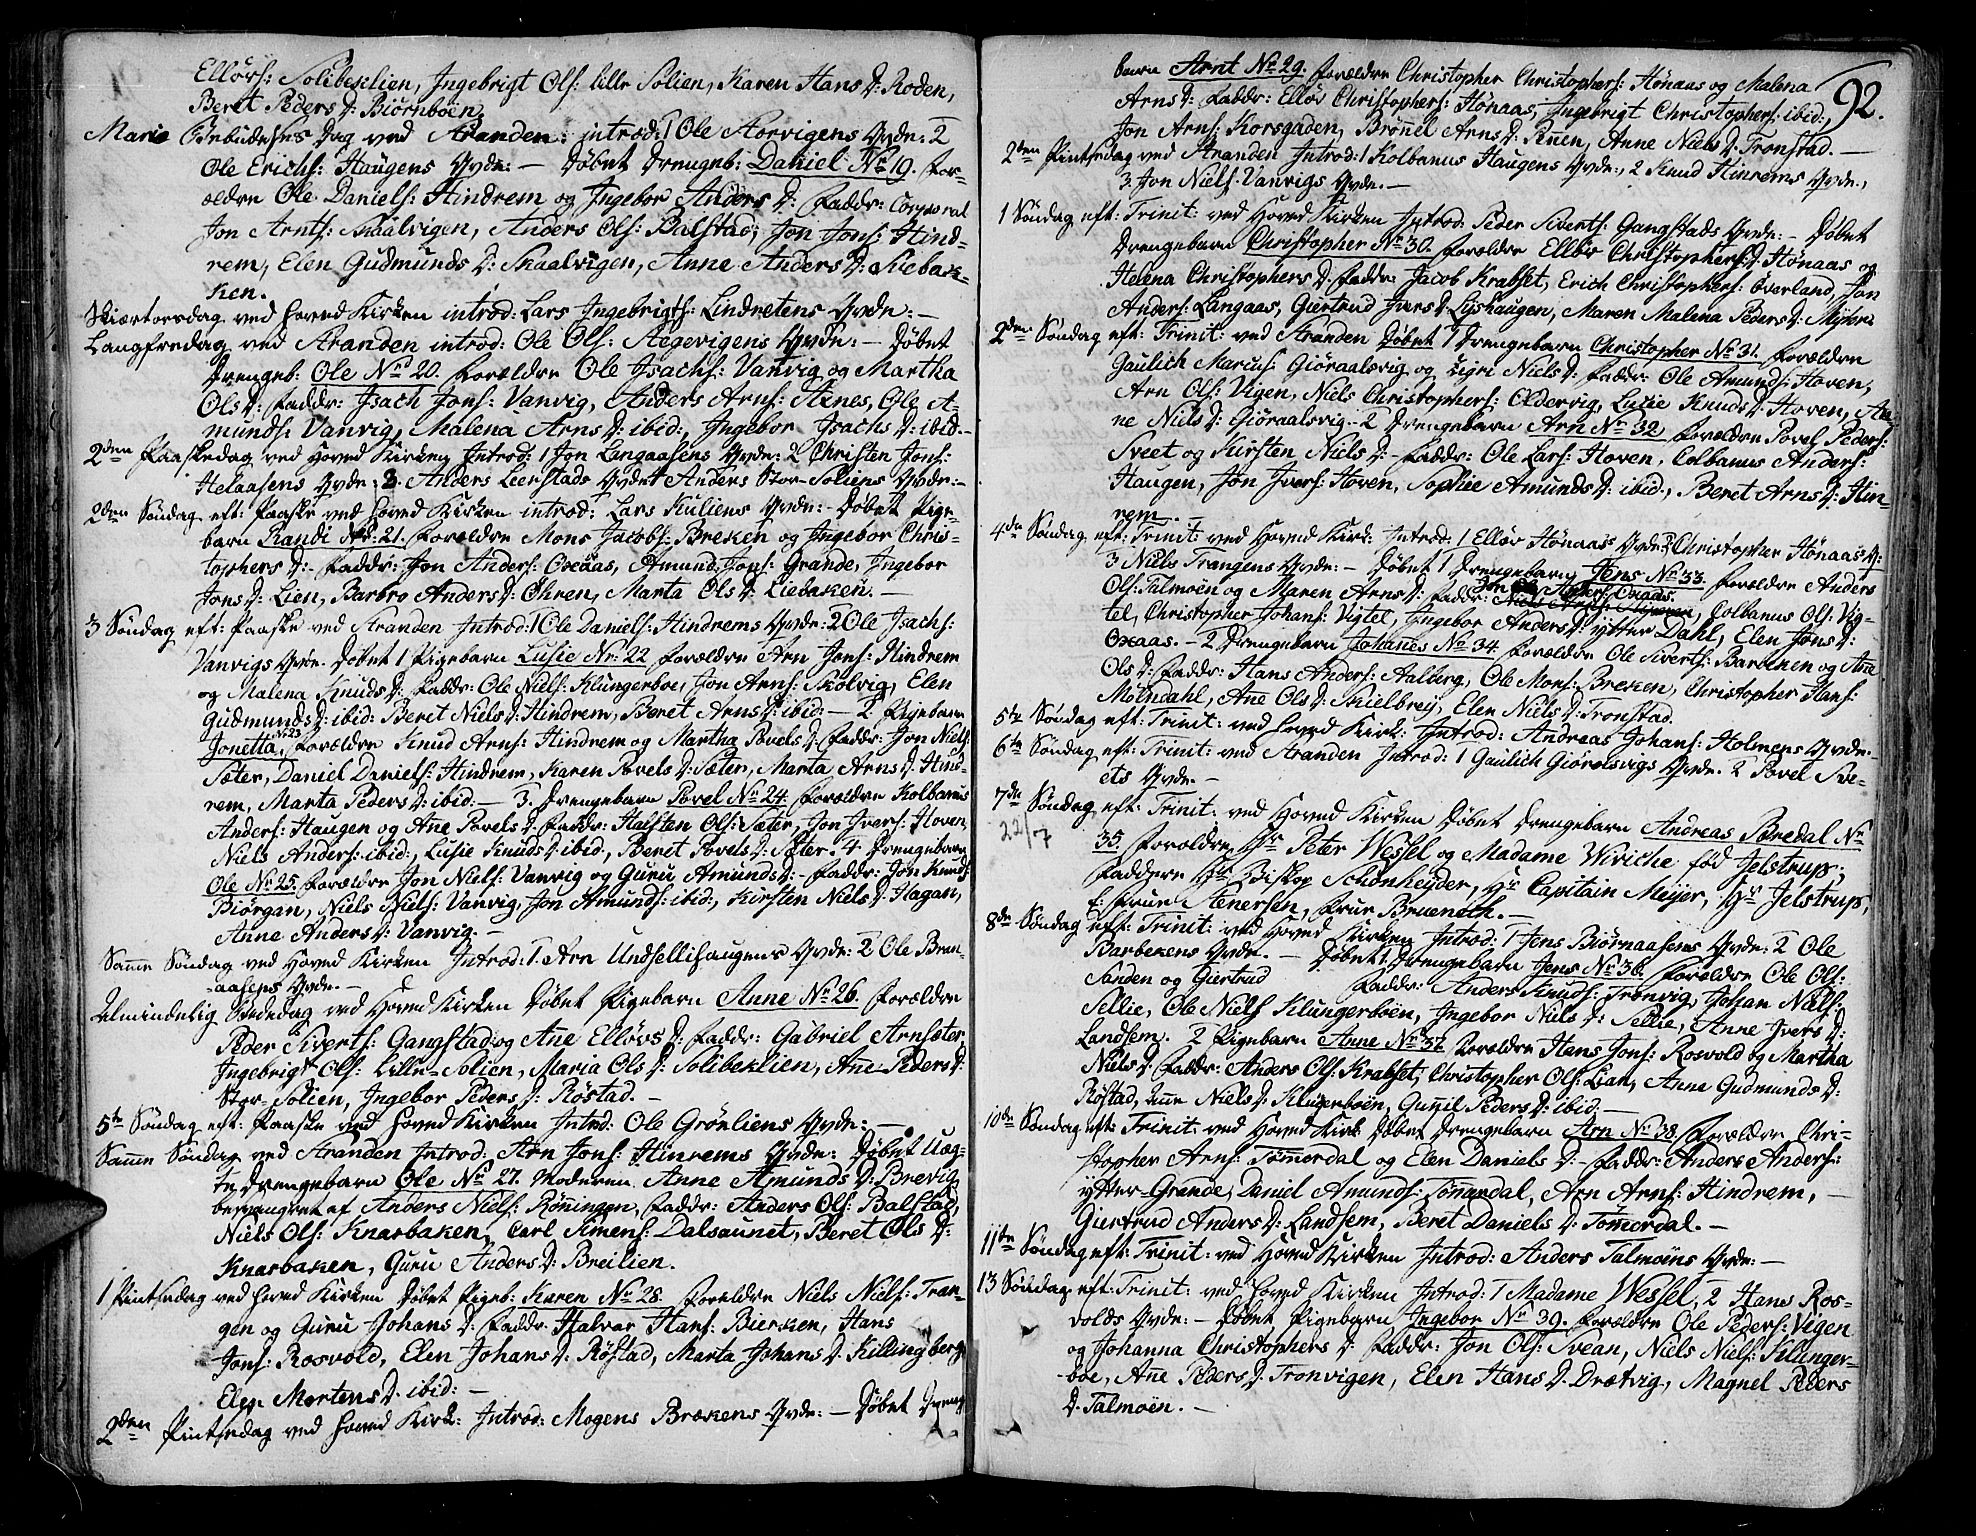 Ellørs: Solibeklien, Ingebrigt Ols: lille Solien, Karen Hans D: Roden,
Beret Peders D: Biørnboen.
Mariæ Bebudelses Dag ved Stranden introd: 1 Ole Storvigens Qvde: 2
Ole Erichs: Haugens Qvde: – Døbet Drengeb: Daniel No 19. For-
ældre Ole Daniels: Hindrem og Ingebor Anders D: Faddr: Corporal
Jon Arnts: Skaalvigen, Anders Ols: Balstad, Jon Jons: Hind-
rem, Elen Gudmunds D: Skaalvigen, Anne Anders D: Liebak-
ken.
Skiærtorsdag ved Hoved Kirken introd: Lars Ingebrigts: Lindretens Qvde: –
Langfredag ved Stranden introd: Ole Ols: Aegevigens Qvde: – Døbet
Drengeb: Ole No 20. Forældre Ole Isachs: Vanvig og Martha
Ols D: Faddr: Isach Jons: Vanvig, Anders Arns: Stines, Ole A-
munds: Vanvig, Malena Arns D: ibid:, Ingebor Isachs D: ibid. –
2den Paaskedag ved Hoved Kirken Introd: 1 Jon Langaasens Qvde: 2 Christen Jons:
Helaasens Qvde: 3. Anders Leenstads Qvde: Anders Stor-Soliens Qvde: –
2den Søndag eft: Paaske ved Hoved Kirken introd: Lars Kuliens Qvde: – Døbet Pige-
barn Randi No: 21. Forældre Mons Jacobs: Breken og Ingebor Chris-
tophers D: – Faddr: Jon Anders: Oxaas, Amund Jons: Grande, Ingebor
Jons D: Lien, Barbro Anders D: Ohren, Marta Ols D: Liebaken. –
3 Søndag eft: Paaske ved Stranden Introd: 1 Ole Daniels: Hindrems Qvde: 2 Ole Isachs:
Vanvigs Qvde. Døbet 1 Pigebarn Lusie No: 22 Forældre Arn Jons: Hindrem
og Malena Knuds D: Faddr: Ole Niels: Klungerboe, Jon Arns: Skolvig, Elen
Gudmunds D: ibid: Beret Niels D: Hindrem, Beret Arns D: ibid: – 2 Pigebarn
Jonetta No 23 Forældre Knud Arns: Hindrem og Martha Povels D: Faddr: Jon Niels:
Sæter, Daniel Daniels: Hindrem, Karen Povels D: Sæter, Marta Arns D: Hind-
rem, Marta Peders D: ibid: – 3. Drengebarn Povel No 24. Forældre Kolbanus
Anders: Haugen og Ane Povels D: Faddr: Halsten Ols: Sæter, Jon Ivers: Hoven,
Niels Anders: ibid:, Lusie Knuds D: ibid, Beret Povels D: Sæter. 4 Drengebarn
Ole No 25. Forældre Jon Niels: Vanvig og Guru Amunds D: – Faddr: Jon Knuds:
Biørgan, Niels Niels: Vanvig, Jon Amunds: ibid:, Kirsten Niels D: Hagan,
Anne Anders D: Vanvig. –
Samme Søndag ved Hoved Kirken Introd: 1. Arn Undsellihaugens Qvde: 2. Ole Bren-
aasens Qvde. –
Almindelig Bededag ved Hoved Kirken Døbet Pigebarn Anne No 26. Forældre
Peder Siverts: Gangstad og Ane Ellørs D: Faddr: Gabriel Arnsæter,
Ingebrigt Ols: Lille-Solien, Maria Ols D: Solibeklien, Ane Peders D:
Stor-Solien, Ingebor Peders D: Røstad. –
5te Søndag eft: Paaske ved Hoved Kirken Introd: Ole Grønliens Qvde: –
Samme Søndag ved Stranden Introd: Arn Jons: Hinrems Qvde: Døbet Uæg-
te Drengebarn Ole No 27. Moderen Anne Amunds D: Brevig,
besvangret af Anders Niels: Røningen, Faddr: Anders Ols: Balstad,
Niels Ols: Knarbaken, Carl Simens: Dalsaunet, Beret Ols D:
Knarbaken, Guru Anders D: Breilien.
1 Pintsedag ved Hoved Kirken Døbet Pigeb: Karen No 28. Forældre Niels Niels: Tran-
gen og Guru Johans D: Faddr: Halvar Hans: Bierken, Hans
Jons: Rosvold, Elen Johans D: Røstad, Marta Johans D: Killingberg,
Elen Mortens D: ibid: –
2den Pintsedag ved Hoved Kirk: Introd: Mogens Brækens Qvde: – Døbet Drenge
barn Arnt No 29. Forældre Christopher Christophers: Hønaas og Malena
92.
Arns D: Faddr: Elløv Christophers: Hønaas, Ingebrigt Christophers: ibid:,
Jon Arns: Korsgaden, Brønel Arns D: Røen, Anne Niels D: Tronstad. –
2den Pintsedag ved Stranden Introd: 1 Kolbanus Haugens Qvde:, 2 Knud Hinrems Qvde:,
3. Jon Niels: Vanvigs Qvde. –
1 Søndag eft: Trinit: ved Hoved Kirken Introd: Peder Siverts: Gangstads Qvde: – Døbet
Drengebarn Christopher No 30. Forældre Elløv Christophers: Hønaas og
Helena Christophers D: Faddr: Jacob Krabset, Erich Christophers: Overland, Jon
Anders: Langaas, Giertrud Ivers D: Lyshaugen, Maren Malena Peders D:
2den Søndag eft: Trinit: ved Stranden Døbet 1 Drengebarn Christopher No 31. Forældre
Gaulich Marius: Giøraalsvig og Sigri Niels D: Faddr: Ole Amunds: Hoven,
Arn Ols: Vigen, Niels Christophers: Oldervig, Lusie Knuds D: Hoven, An-
ne Niels D: Giøraalsvig. 2 Drengebarn Arn No 32. Forældre Povel Peders:
Sveet og Kirsten Niels D: – Faddr: Ole Lars: Hoven, Colbanus Anders:
Haugen, Jon Ivers: Hoven, Sophie Amunds D: ibid., Beret Arns D: Hin-
rem. –
4de Søndag eft: Trinit: ved Hoved Kirk: Introd: 1 Elløv Hønaas Qvde: 2 Christopher Hønaas Q:
3 Niels Trangens Qvde: – Døbet 1 Drengebarn Jens No 33. Forældre Anders
Ols: Talmoen og Maren Arns D: Faddr: Jon Anders: Oxaas, Colbanus Ols: Vig-
tel, Christopher Johans: Vigtel, Ingebor Anders D: ytter Dahl, Elen Jons D:
Oxaas. – 2 Drengebarn Johanes No 34. Forældre Ole Siverts: Barbeken og Ane
Ols D: Faddr: Hans Anders: Aalberg, Ole Mons: Breken, Christopher Hans:
Mølndahl, Ane Ols D: Skielbrey, Elen Niels D: Tronstad.
5te Søndag eft: Trinit: ved Hoved Kirk: Introd: Andreas Johans: Holmens Qvde.
6te Søndag eft: Trinit: ved Stranden Introd: 1 Gaulich Giøraalsvigs Qvde. 2 Povel Sve-
ets Qvde. –
7de Søndag eft: Trinit: ved Hoved Kirken Døbet Drengebarn Andreas Bredal No
22/7
35. Forældre Hr Peter Wessel og Madame Wiriche fød Jelstrup;
Faddere Hr Biskop Schønheyder, Hr Capitain Meyer, Hr Jelstrup,
f: Frue Stenersen, Frue Brueneth. –
8de Søndag eft: Trinit: ved Hoved Kirken Introd: 1 Jens Biørnaasens Qvde: 2 Ole
Barbekens Qvde. – Døbet 1. Drengebarn Jens No 36. Forældre Ole Ols:
Sanden og Giertrud Faddr: Anders Knuds: Tronvig, Johan Niels:
Sellie, Ole Niels Klungerboen, Ingebor Niels D: Sellie, Anne Ivers D:
Landsem. 2 Pigebarn Anne No 37. Forældre Hans Jons: Rosvold og Martha
Niels D: Faddr: Anders Ols: Krabset, Christopher Ols: Lian, Anne Gudmunds D:
Røstad, Anne Niels D: Klungerboen, Gunil Peders D: ibid. –
10de Søndag eft: Trinit: ved Hoved Kirk Døbet Drengebarn Arn No 38. Forældre Chri-
stopher Arns: Tømerdal og Elen Daniels D: – Faddr: Anders Anders:
ytter-Grande, Daniel Amunds: Tømerdal, Arn Arns: Hindrem, –
Giertrud Anders D: Landsem, Beret Daniels D: Tømerdal. –
11te Søndag eft: Trinit: ved Hoved Kirken Introd: Anders Talmoens Qvde: –
13 Søndag eft: Trinit: ved Hoved Kirken Introd: 1 Madame Wessel, 2 Hans Ros-
volds Qvde: – Døbet Pigebarn Ingebor No 39. Forældre Ole Peders: Vigen
og Johanna Christophers D: Faddr: Jon Ols: Svean, Niels Niels: Klunger-
boe, Ane Peders D: Tronvigen, Elen Hans D: Drætvig, Magnel Peders
D: Talmoen. –